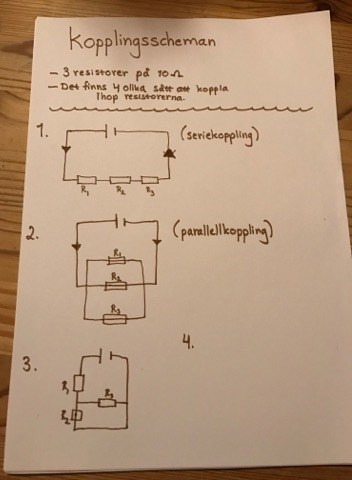 Kopplingsscheman
- 3 resistorer på 10Ω
- Det finns 4 olika sätt att koppla
ihop resistorerna.
1.
(seriekoppling)
R1 R2 R3
2.
(parallellkoppling)
R1
R2
R3
3.
4.
R1
R3
R2